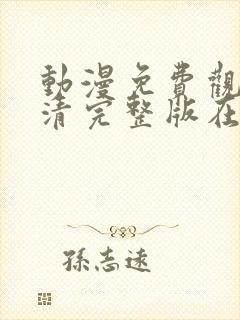 動漫免費觀
清完整版在
孫志遠